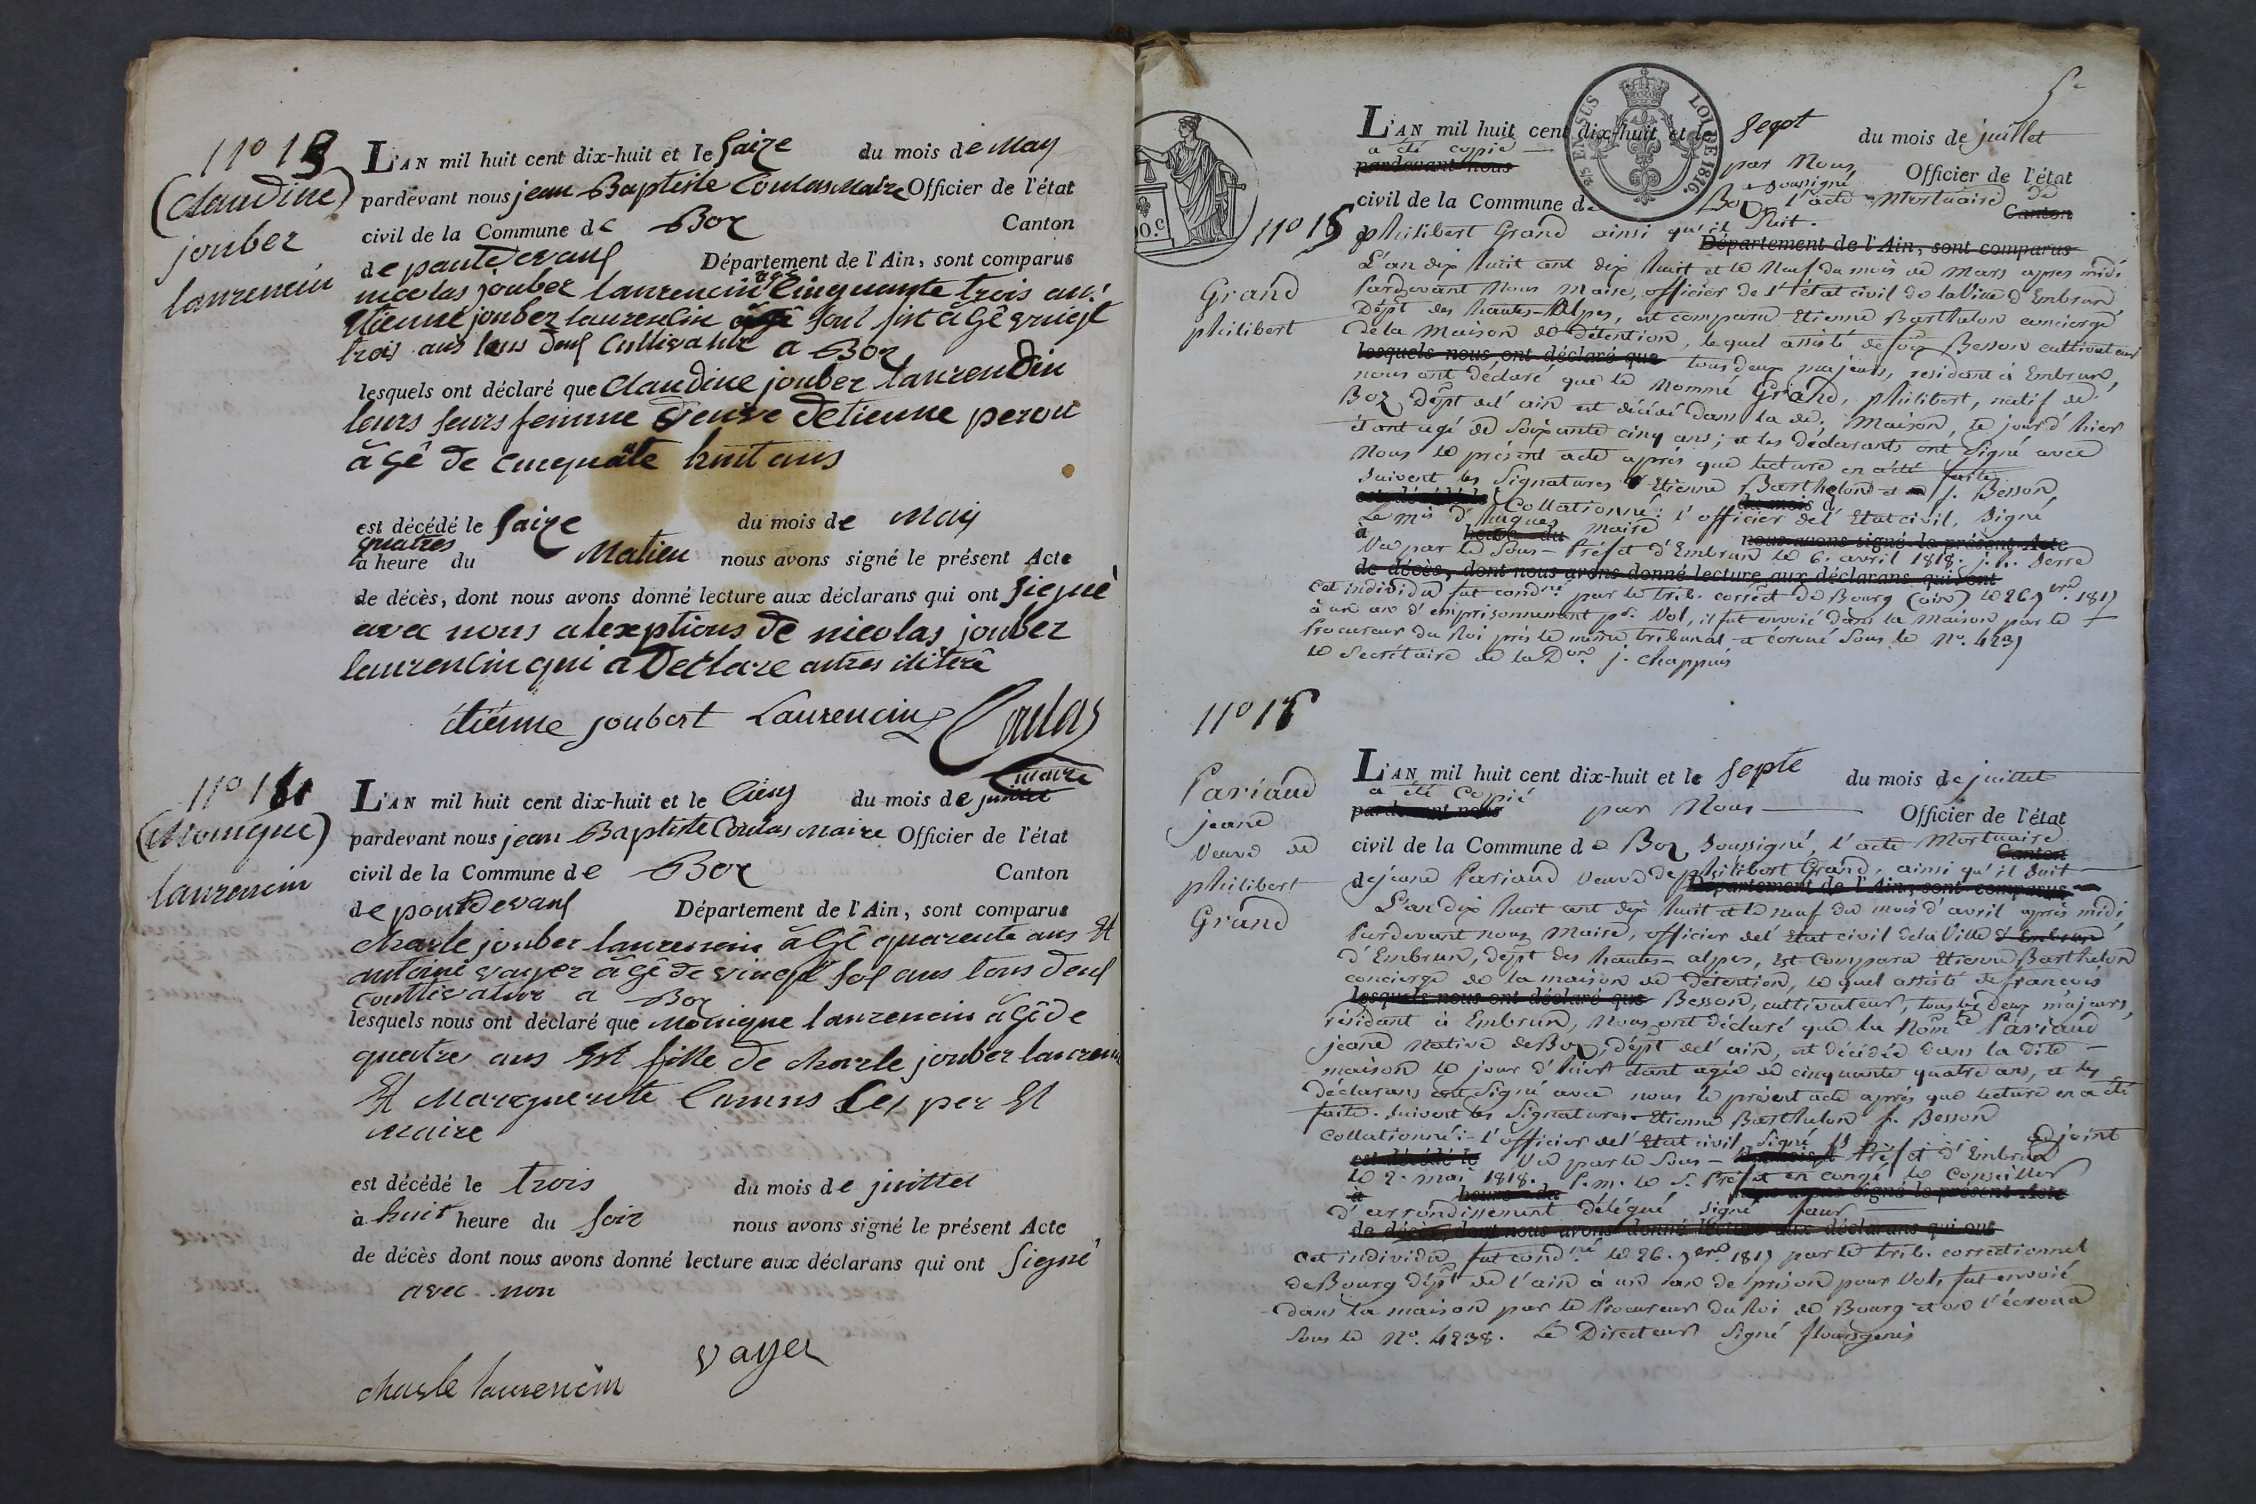 n° 13
(Claudine)
jouber
laurencin
L'AN mil huit cent dix-huit et le saize du mois de May
pardevant nous jean Baptiste Coulas Maire Officier de l'état
civil de la Commune de Boz Canton
de pontdevaux Département de l'Ain, sont comparus
nicolas jouber laurencin age Cinquante trois ans
Etienne jouber laurencin sont fist âgê vingt
trois ans tous deux Cultivattr a Boz
lesquels ont déclaré que Claudine jouber laurendin
leurs seurs femme veuve detienne perou
âgê de Cinequate huit ans
est décédé le saize du mois de May
quatres
à heure du Matien nous avons signé le présent Acte
de décès, dont nous avons donné lecture aux déclarans qui ont signè
avec nous alexptions de nicolas jouber
laurencin qui a Declare
étienne joubert Laurencin Coulas
maire
n° 14
(Monique)
laurencin
L'AN mil huit cent dix-huit et le Cinq du mois de juillet
pardevant nous jean Baptiste Coulas Maire Officier de l'état
civil de la Commune de Boz Canton
de pontdevaux Département de l'Ain, sont comparus
Charle jouber laurencin âgê quarente ans Et
antoine vayer âgê de vingt ans tous deux
coultivature a Boz
lesquels nous ont déclaré que Monique laurencin âgê de
quatre ans Est fille de Charle jouber laurencin
Et Marguerite Camus Ses per Et
Maire
est décédé le trois du mois de juittet
à huit heure du soir nous avons signé le présent Acte
de décès dont nous avons donné lecture aux déclarans qui ont Signé
avec non
vayer
charle laurencin
TIMB. EN SUS
LOI DE 1816.
50.c
n° 15
Grand
philibert
L'AN mil huit cent dix-huit et le sept du mois de juillet
a été copié par Nous
pardevant nous Officier de l'état
civil de la Commune de Boz soussigné, l'acte Mortuaire de
Canton
philibert Grand ainsi qu'il suit.
Département de l'Ain, sont comparus
L'an dix huit cent dix huit et le Neuf du mois de Mars apres midi
Pardevant Nous Maire, officier de l'état civil de la Ville d'Embrun
Dépt des hautes-Alpes, est comparu Etienne Barthelon concierge
de la Maison de Détention, lequel assisté de fois Besson cultivateur
lesquels nous ont déclaré que tous deux majeurs, residant à Embrun,
nous ont déclaré que le nommé Grand, philibert, natif de
Boz Dépt de l'ain est décédé dans la de. Maison, le jour d'hier
étant agé de soixante cinq ans; et les déclarants ont signé avec
Nous le présent acte après que lecture en a été faite
suivent les signatures Etienne Barthelon et f. Besson
est décédé le Collationné: l'officier de l'Etat civil, signé
du mois d
Le mis d'hugues maire
à heure du nous avons signé le présent Acte
Vu par le Sous-Préfet d'Embrun le 6. avril 1818.
de décès, dont nous avons donné lecture aux déclarans qui ont
Cet individu fut condné par le trib. correct de Bourg (ain) le 26 9bre 1817
à un an d'emprisonnement pr. Vol, il fut envoié dans la Maison par le
Procureur du Roi près le même tribunal et écroué sous le N°. 4237
le Secrétaire de la Don. j. Chappuis
n° 16
Pariaud
jeane
Veuve de
philibert
Grand
L'AN mil huit cent dix-huit et le septe du mois de juillet
a été copié par Nous
pardevant nous Officier de l'état
civil de la Commune de Boz soussigné, l'acte Mortuaire
Canton
de jeane Pariaud veuve de philibert Grand, ainsi qu'il suit
Département de l'Ain, sont comparus
L'an dix huit cent dix huit et le neuf du mois d'avril après midi
Pardevant nous Maire, officier de l'Etat civil dela Ville d'Embrun
d'Embrun, dépt des hautes-alpes, Est Comparu Etienne Barthelon
concierge de la maison de Détention, lequel assisté de francois
lesquels nous ont déclaré que Besson, cultivateur, tous les deux majeurs,
résidant à Embrun, Nous ont déclaré que la Nomée Pariaud
jeane Native de Boz, dépt de l'ain, est décédée dans la dite
maison le jour d'hier étant agée de cinquante quatre ans, et les
déclarans ont signé avec nous le présent acte après que lecture en a été
faite. suivent les signatures Etienne Barthelon f. Besson
Collationné:- l'officier de l'Etat civil, signé adjoint
est décédé le Vu par le Sous-Préfet d'Embrun
le 2. mai 1818. P.m. le S. Préfet en congé le Conseiller
à heure du nous avons signé le présent Acte
d'arrondissement délégué signé faur
de décès, dont nous avons donné lecture aux déclarans qui ont
Cet individu fut condné le 26. 9bre 1817 par le trib. correctionnel
de Bourg dépt de l'ain à un an de prison pour Vol, fut envoié
dans la maison par le Procureur du Roi de Bourg et on l'écroua
sous le N°. 4238. Le Directeur signé